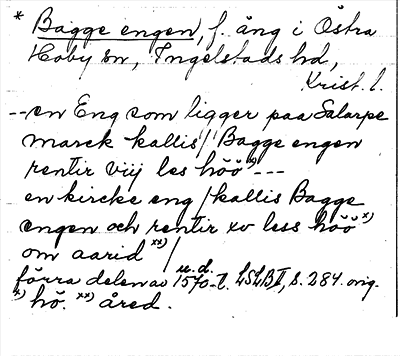 * Bagge engen, f. äng i Östra
Hoby sn, Ingelstads hd,
Krist. l.
--en Eng som ligger paa Salarpe
marck kallis / Bagge engen
rentir viij les höö x) ---
en kircke eng / kallis Bagge
engen och rentir xv less höö x)
om aarid xx) /
förra delen av 1570-t. u.d. LSLB II, s. 284. orig.
x) hö. xx) åred.